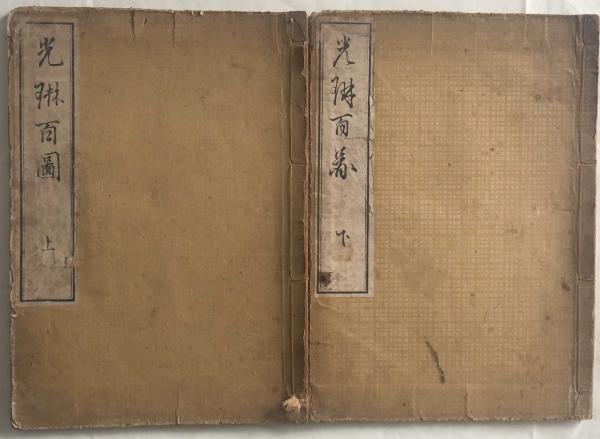 光琳百圖
上
光琳百圖
下